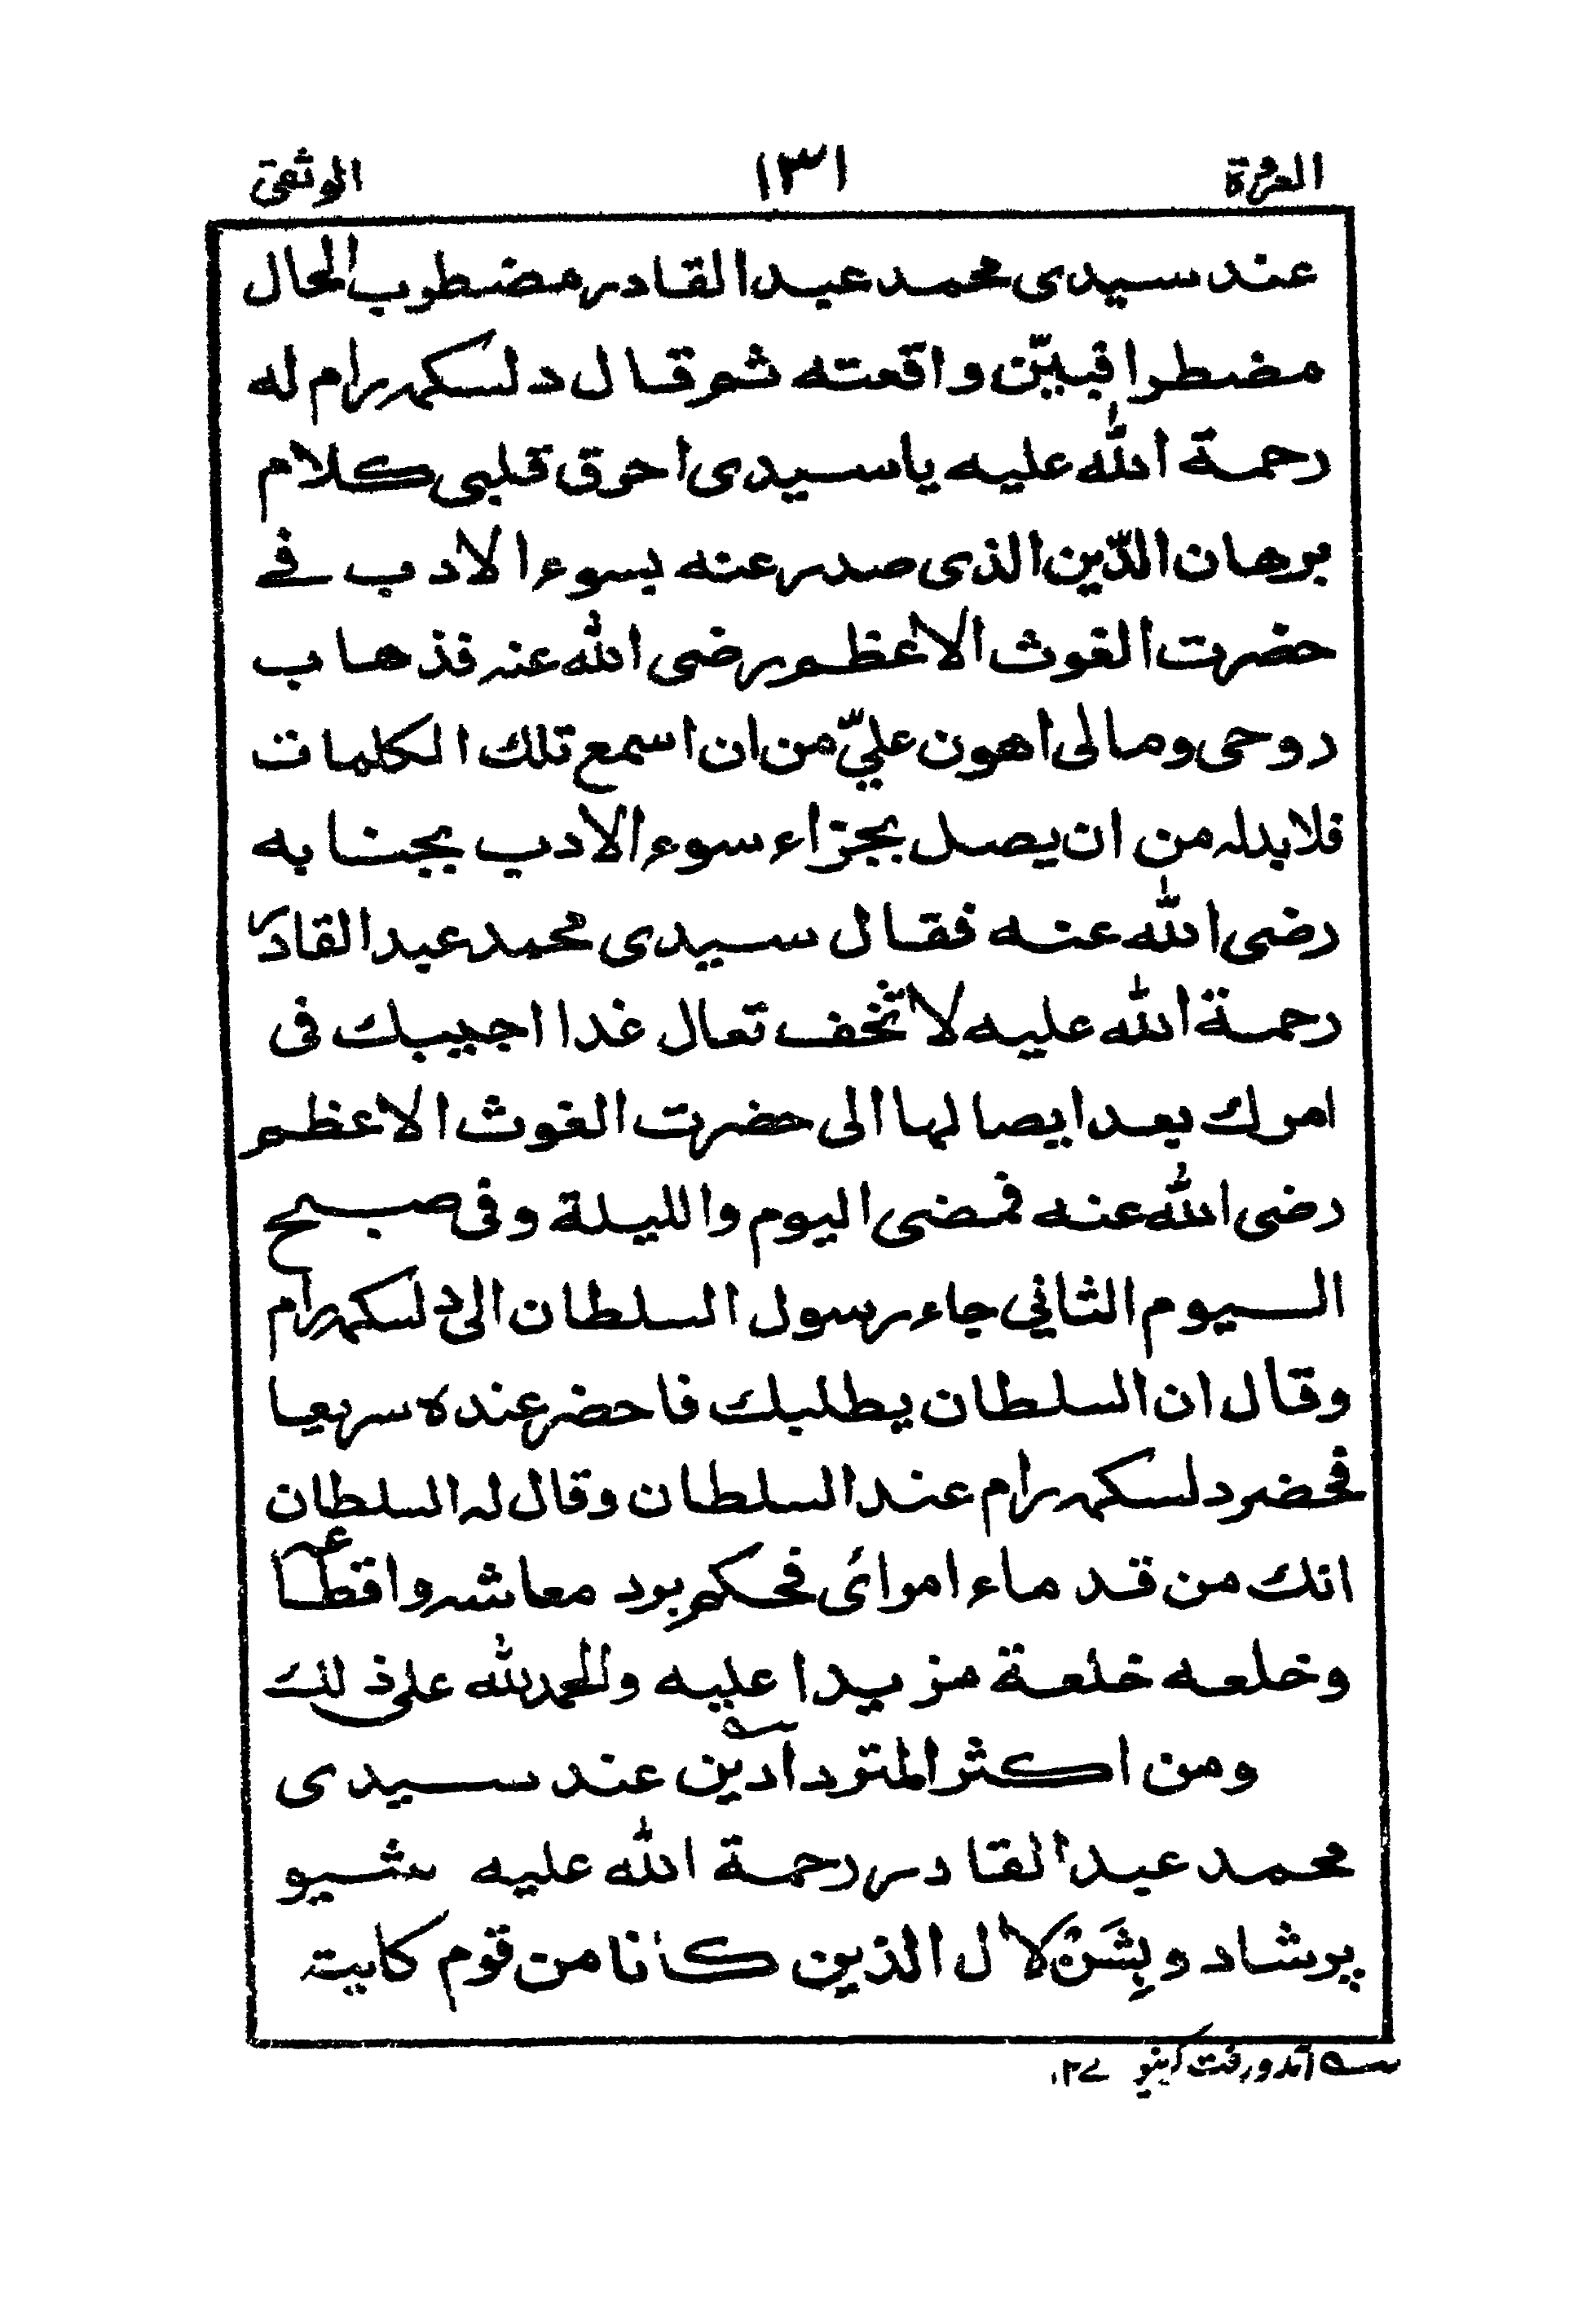 العروة ١٣١ الوثقى
عند سيدى محمد عبد القادر مضطرب الحال
مضطرا فبيّن واقعته ثم قال دلسكهرام له
رحمة الله عليه ياسيدى احرق قلبى كلام
برهان الدّين الذى صدر عنه بسوء الادب في
حضرت الغوث الاعظم رضى الله عنه فذهاب
روحى ومالى اهون عليّ من ان اسمع تلك الكلمات
فلابدله من ان يصل بجزاء سوء الادب بجنابه
رضى الله عنه فقال سيدى محمد عبد القادر
رحمة الله عليه لا تخف تعال غدا اجيبك فى
امرك بعد ايصالها الى حضرت الغوث الاعظم
رضى الله عنه فمضى اليوم والليلة وفى صبح
اليوم الثاني جاء رسول السلطان الى دلسكهرام
وقال ان السلطان يطلبك فاحضر عنده سريعا
فحضر دلسكهرام عند السلطان وقال له السلطان
انك من قدماء امرائ فحكم برد معاشه واقطاعه
وخلعه خلعة مزيدا عليه والحمد لله على ذلك
ومن اكثر المتردادين عند سيدى
محمد عبد القادر رحمة الله عليه شيو
پرشاد وبِشَنْ لال الذين كانا من قوم كايتہ
آمد و رفت